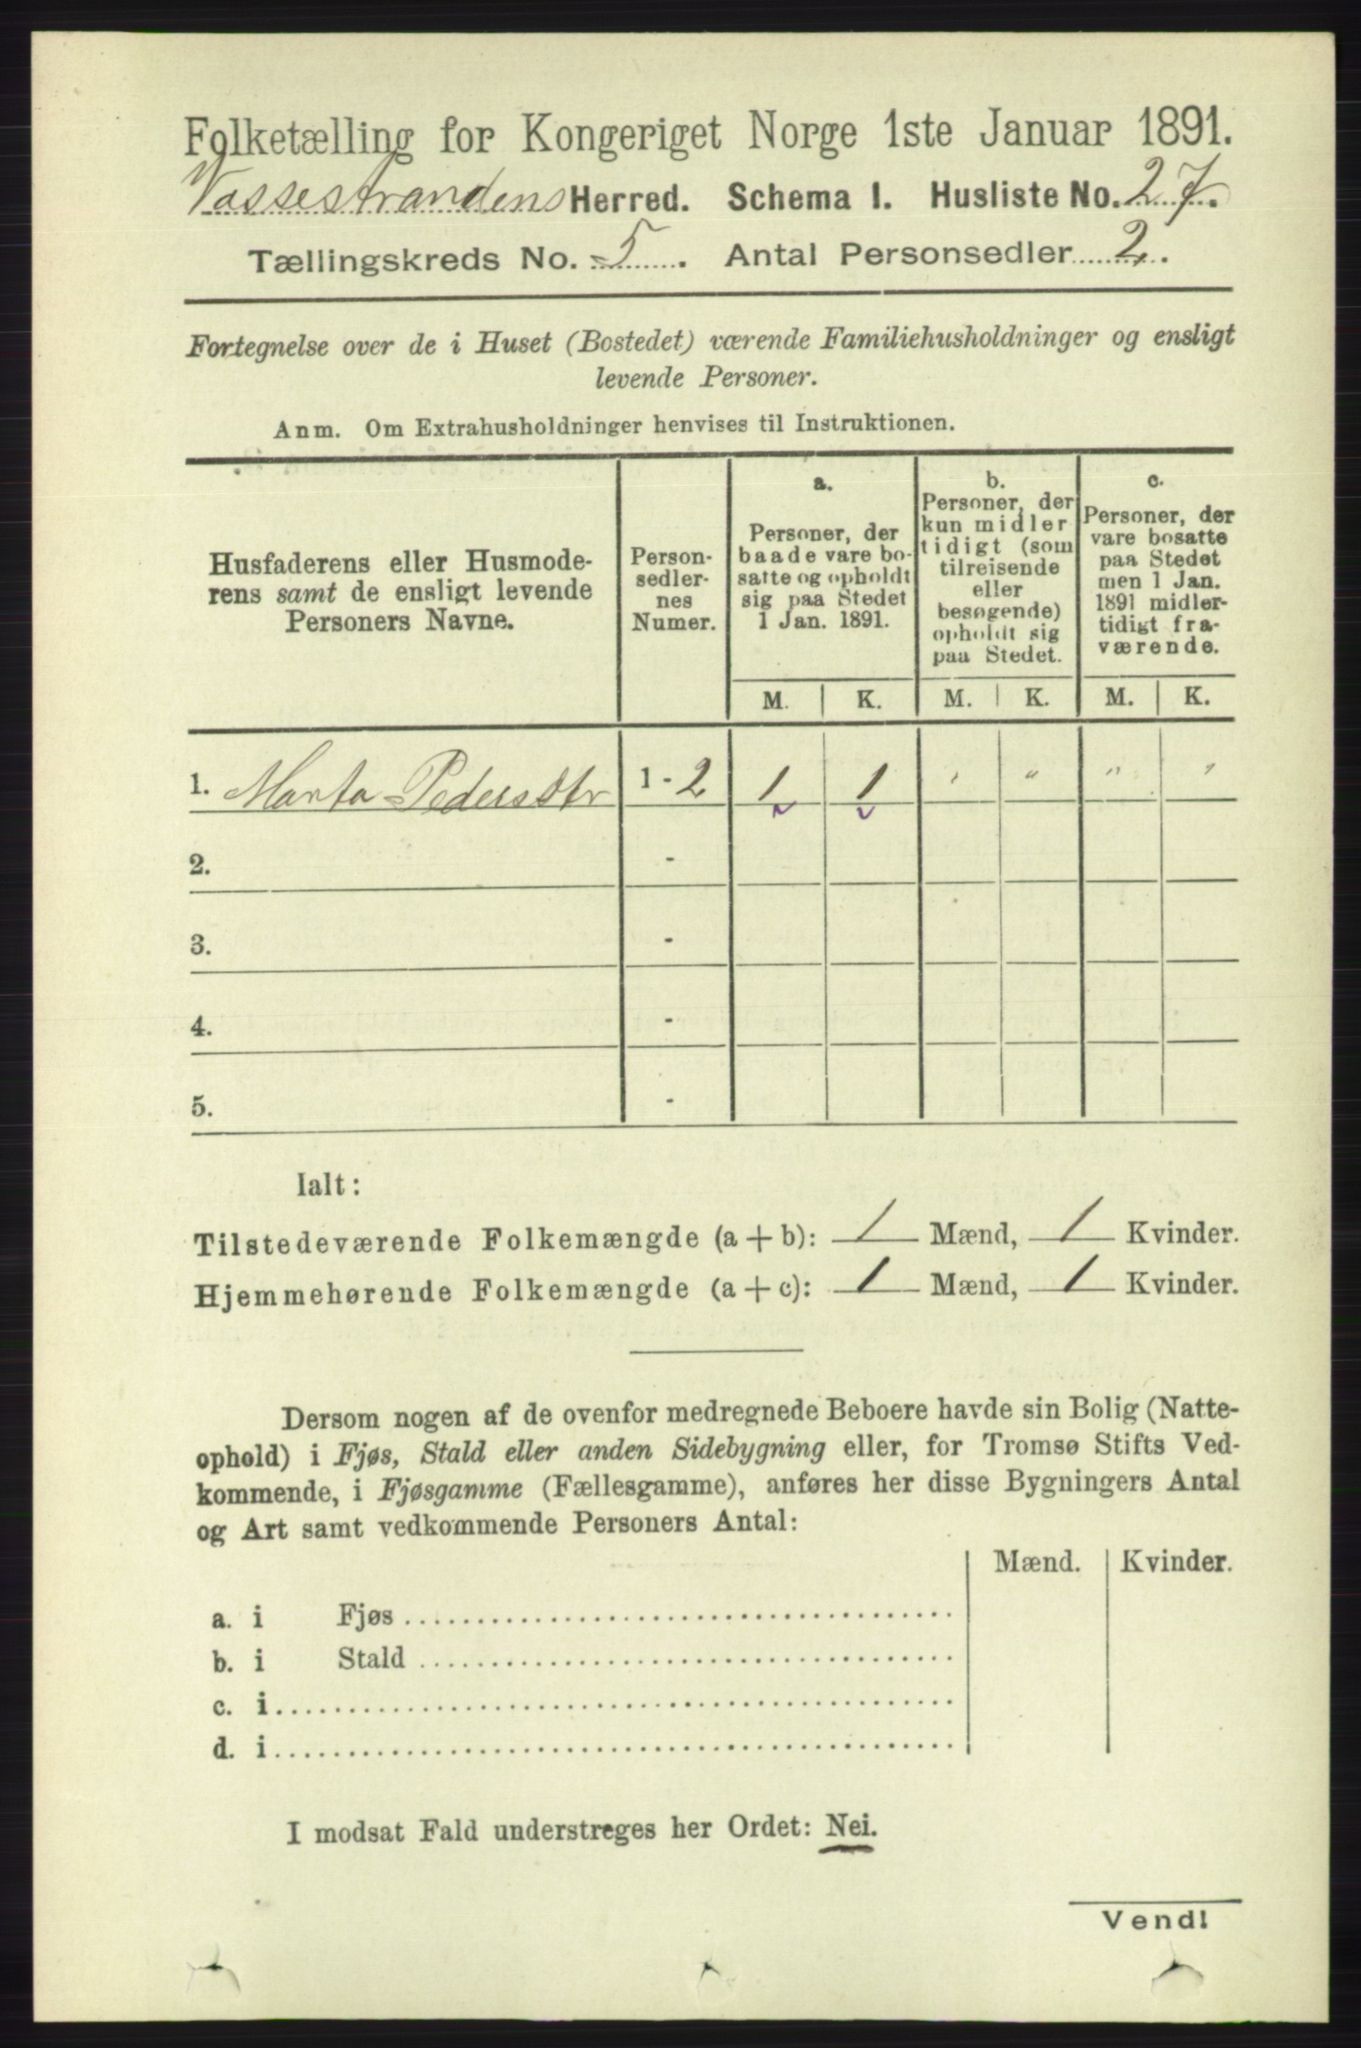 Folketælling for Kongeriget Norge 1ste Januar 1891.
Vossestrandens Herred. Schema I. Husliste No. 27.
Tællingskreds No. 5. Antal Personsedler 2.
Fortegnelse over de i Huset (Bostedet) værende Familiehusholdninger og ensligt
levende Personer.
Anm. Om Extrahusholdninger henvises til Instruktionen.
Husfaderens eller Husmode-
rens samt de ensligt levende
Personers Navne.
Person-
sedler-
nes
Numer.
a.
Personer, der
baade vare bo-
satte og opholdt
sig paa Stedet
1 Jan. 1891.
b.
Personer, der
kun midler
tidigt (som
tilreisende
eller
besøgende)
opholdt sig
paa Stedet.
c.
Personer, der
vare bosatte
paa Stedet
men 1 Jan.
1891 midler-
tidigt fra-
værende.
M. K. M. K. M. K.
1. Marta Pedersdtr 1 - 2 1 1 " " " "
2. -
3. -
4. -
5. -
Ialt:
Tilstedeværende Folkemængde (a + b): 1 Mænd, 1 Kvinder.
Hjemmehørende Folkemængde (a + c): 1 Mænd, 1 Kvinder.
Dersom nogen af de ovenfor medregnede Beboere havde sin Bolig (Natte-
ophold) i Fjøs, Stald eller anden Sidebygning eller, for Tromsø Stifts Ved-
kommende, i Fjøsgamme (Fællesgamme), anføres her disse Bygningers Antal
og Art samt vedkommende Personers Antal:
Mænd. Kvinder.
a. i Fjøs
b. i Stald
c. i
d. i
I modsat Fald understreges her Ordet: Nei.
Vend!